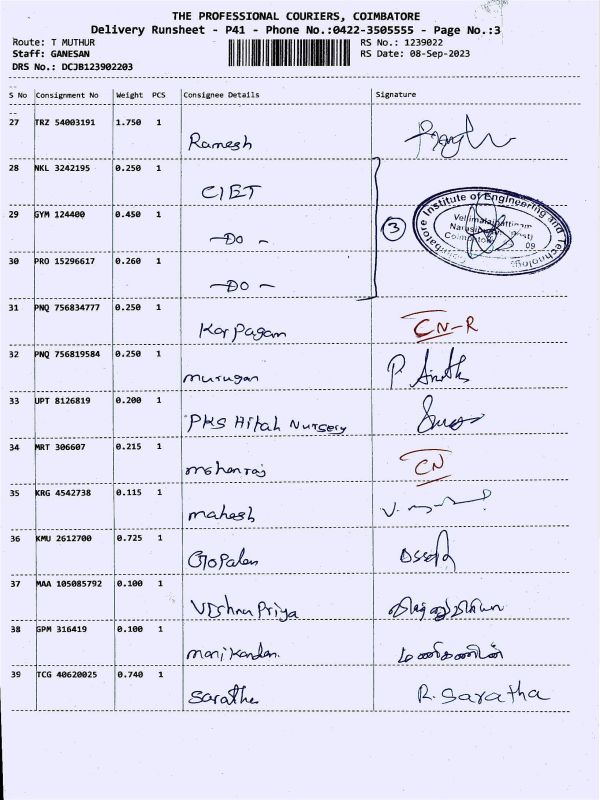 THE PROFESSIONAL COURIERS, COIMBATORE
Delivery Runsheet - P41 - Phone No.:0422-3505555 - Page No.:3
Route: T MUTHUR RS No.: 1239022
Staff: GANESAN RS Date: 08-Sep-2023
DRS No.: DCJB123902203
S No Consignment No Weight PCS Consignee Details Signature
27 TRZ 54003191 1.750 1
Ramesh
28 NKL 3242195 0.250 1
CIET
29 GYM 124400 0.450 1
-DO-
30 PRO 15296617 0.260 1
-DO-
3
Coimbatore Institute of Engineering and Technology
09
31 PNQ 756834777 0.250 1
Karpagam CN-R
32 PNQ 756819584 0.250 1
murugan P.
33 UPT 8126819 0.200 1
PKS Hitah Nursery
34 MRT 306607 0.215 1
mohanraj CN
35 KRG 4542738 0.115 1
mahesh V.
36 KMU 2612700 0.725 1
Gopalan
37 MAA 105085792 0.100 1
VishnuPriya விஷ்ணுப்பிரியா
38 GPM 316419 0.100 1
manikandan. மணிகண்டன்
39 TCG 40620025 0.740 1
Saratha R. Saratha